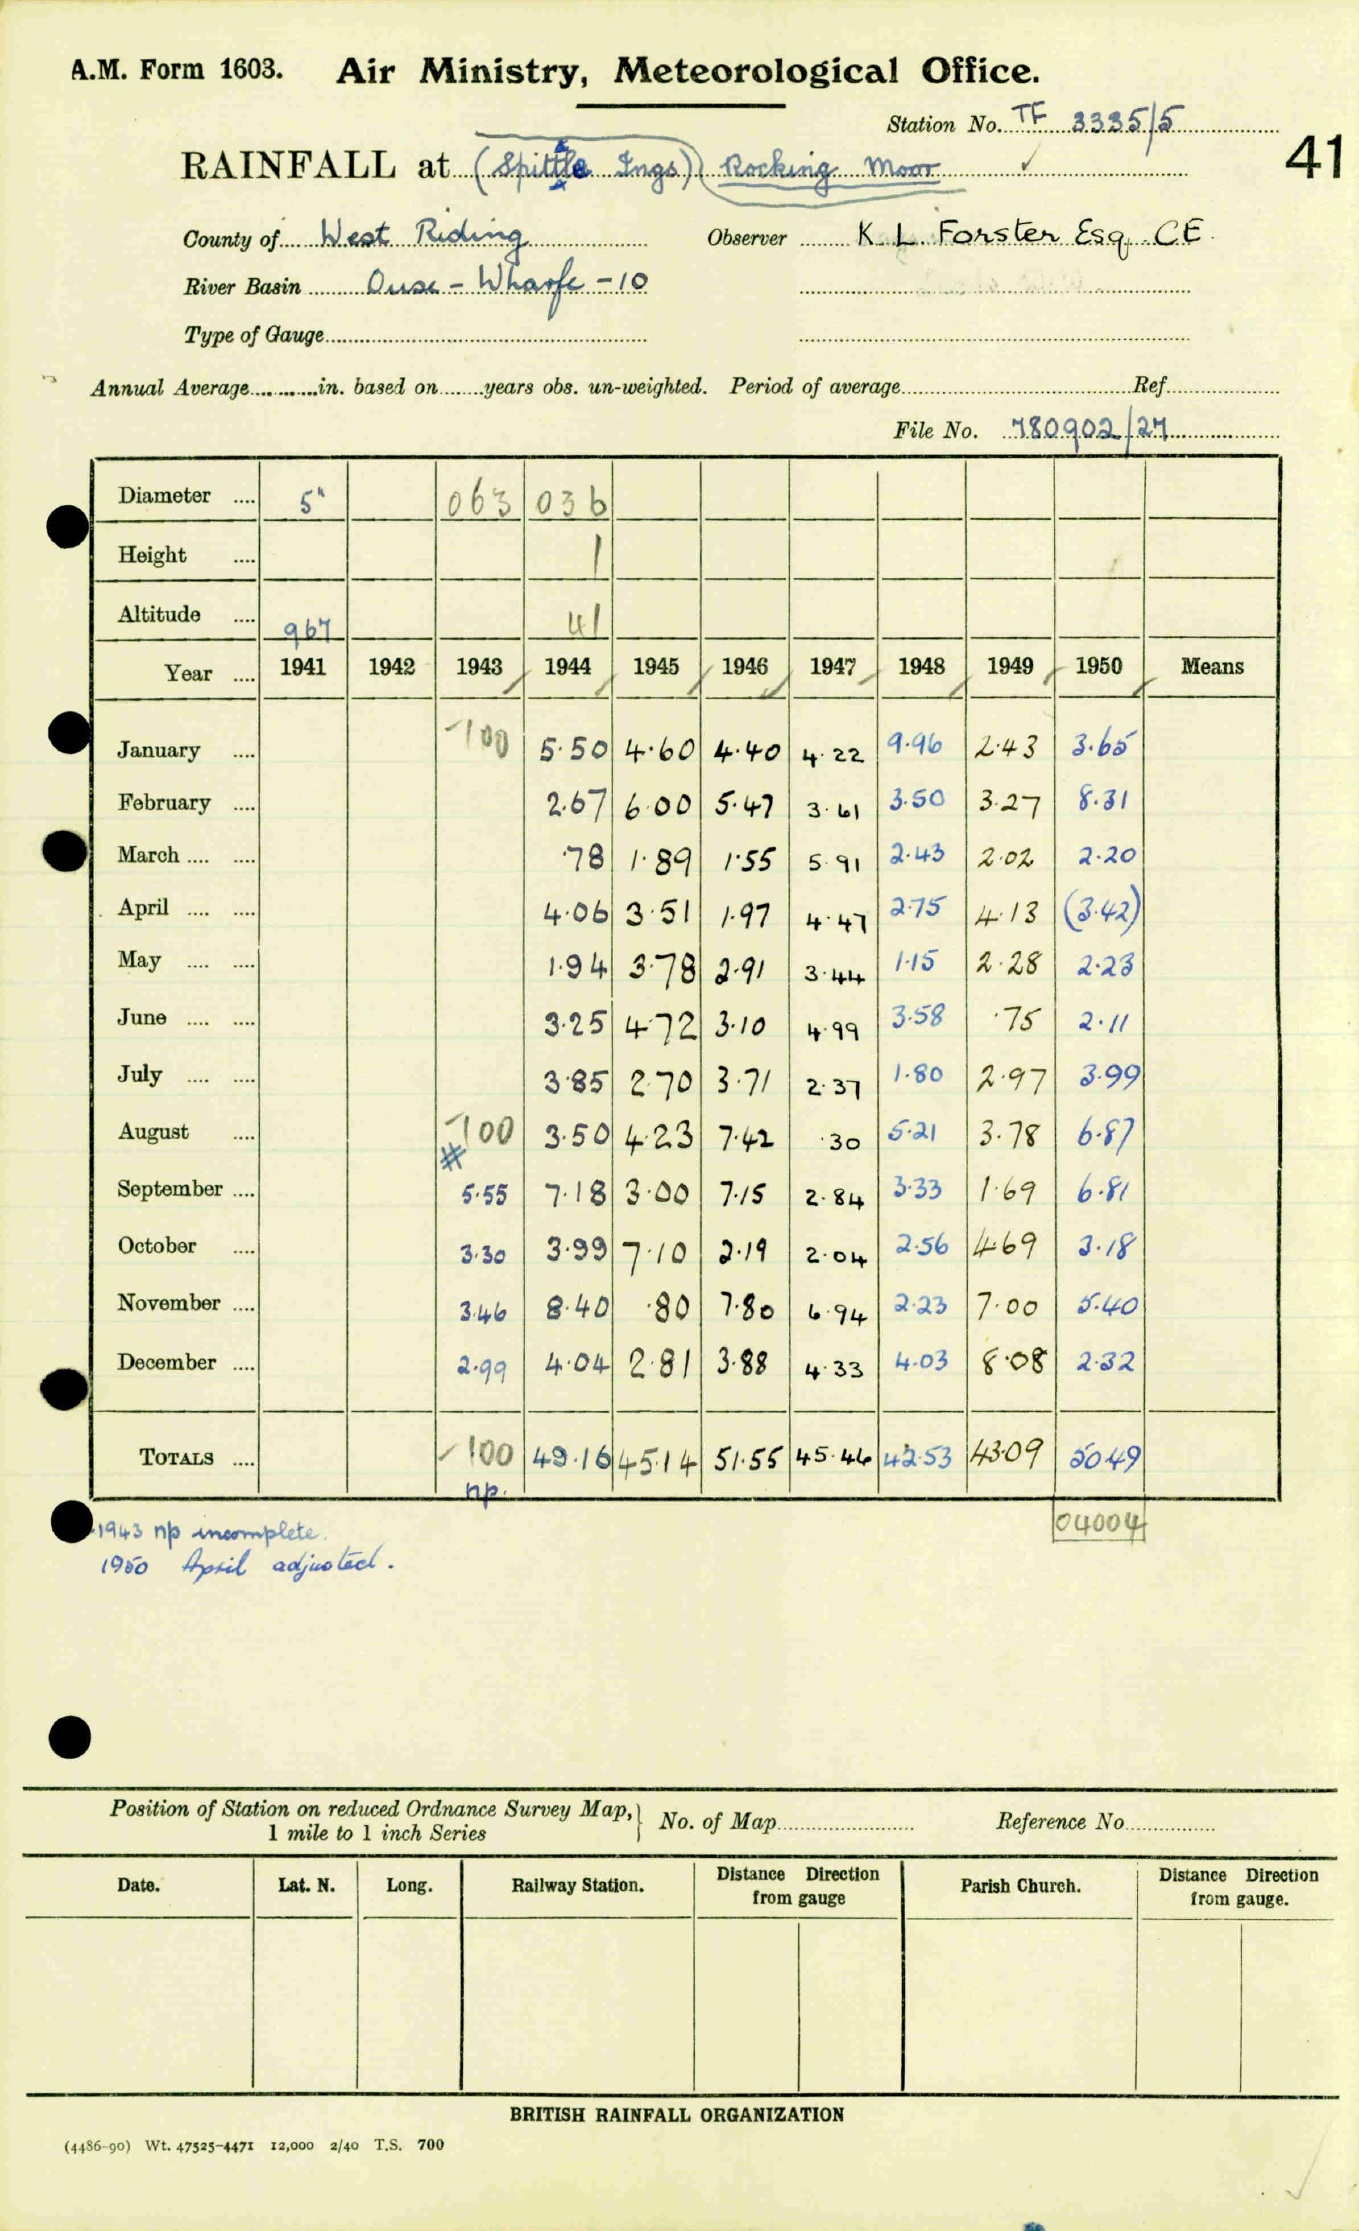 A.M. Form 1603. Air Ministry, Meteorological Office.
Station No. TF 3335/5
41
RAINFALL at (Spittle Ings) Rocking Moor
County of West Riding Observer K. L. Forster Esq. C.E.
River Basin Ouse - Wharfe - 10
Type of Gauge
Annual Average in. based on years obs. un-weighted. Period of average Ref
File No. 780902/27
Diameter .... 5" 063 036
Height .... 1
Altitude .... 967 41
Year .... 1941 1942 1943 1944 1945 1946 1947 1948 1949 1950 Means
January .... -100 5.50 4.60 4.40 4.22 9.96 2.43 3.65
February .... 2.67 6.00 5.47 3.61 3.50 3.27 8.31
March .... .... .78 1.89 1.55 5.91 2.43 2.02 2.20
April .... .... 4.06 3.51 1.97 4.47 2.75 4.13 (3.42)
May .... .... 1.94 3.78 2.91 3.44 1.15 2.28 2.23
June .... .... 3.25 4.72 3.10 4.99 3.58 .75 2.11
July .... .... 3.85 2.70 3.71 2.37 1.80 2.97 3.99
August .... -100 3.50 4.23 7.42 .30 5.21 3.78 6.87
#
September .... 5.55 7.18 3.00 7.15 2.84 3.33 1.69 6.81
October .... 3.30 3.99 7.10 2.19 2.04 2.56 4.69 3.18
November .... 3.46 8.40 .80 7.80 6.94 2.23 7.00 5.40
December .... 2.99 4.04 2.81 3.88 4.33 4.03 8.08 2.32
TOTALS .... -100 49.16 45.14 51.55 45.46 42.53 43.09 50.49
np.
04004
1943 np incomplete.
1950 April adjusted.
Position of Station on reduced Ordnance Survey Map,} No. of Map Reference No.
1 mile to 1 inch Series
Date. Lat. N. Long. Railway Station. Distance Direction from gauge Parish Church. Distance Direction from gauge.
BRITISH RAINFALL ORGANIZATION
(4486-90) Wt. 47525-4471 12,000 2/40 T.S. 700